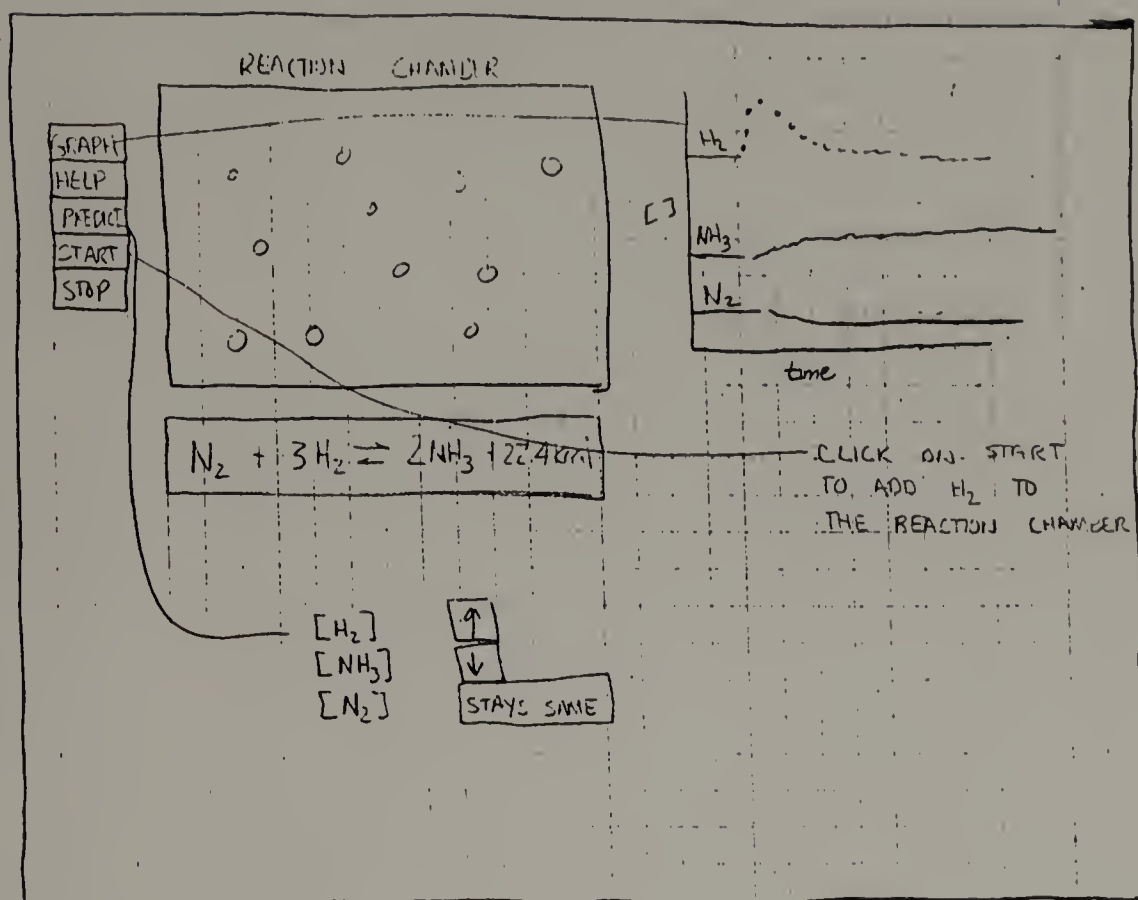 REACTION CHAMBER
GRAPH
HELP
PREDICT
START
STOP
H₂
[ ]
NH₃
N₂
time
N₂ + 3H₂ ⇌ 2NH₃ + 22.4 kcal
CLICK ON START
TO ADD H₂ TO
THE REACTION CHAMBER
[H₂] ↑
[NH₃] ↓
[N₂] STAYS SAME